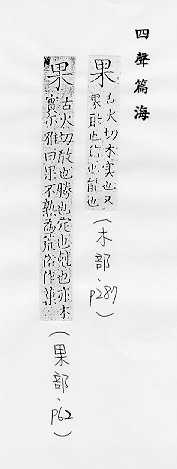 四聲篇海
果
古火切木實也又
果敢也信也能也
(木部、p287)
果
古火切放也勝也定也剋也亦木
實尒雅曰果不熟為荒俗作菓
(果部、p62)